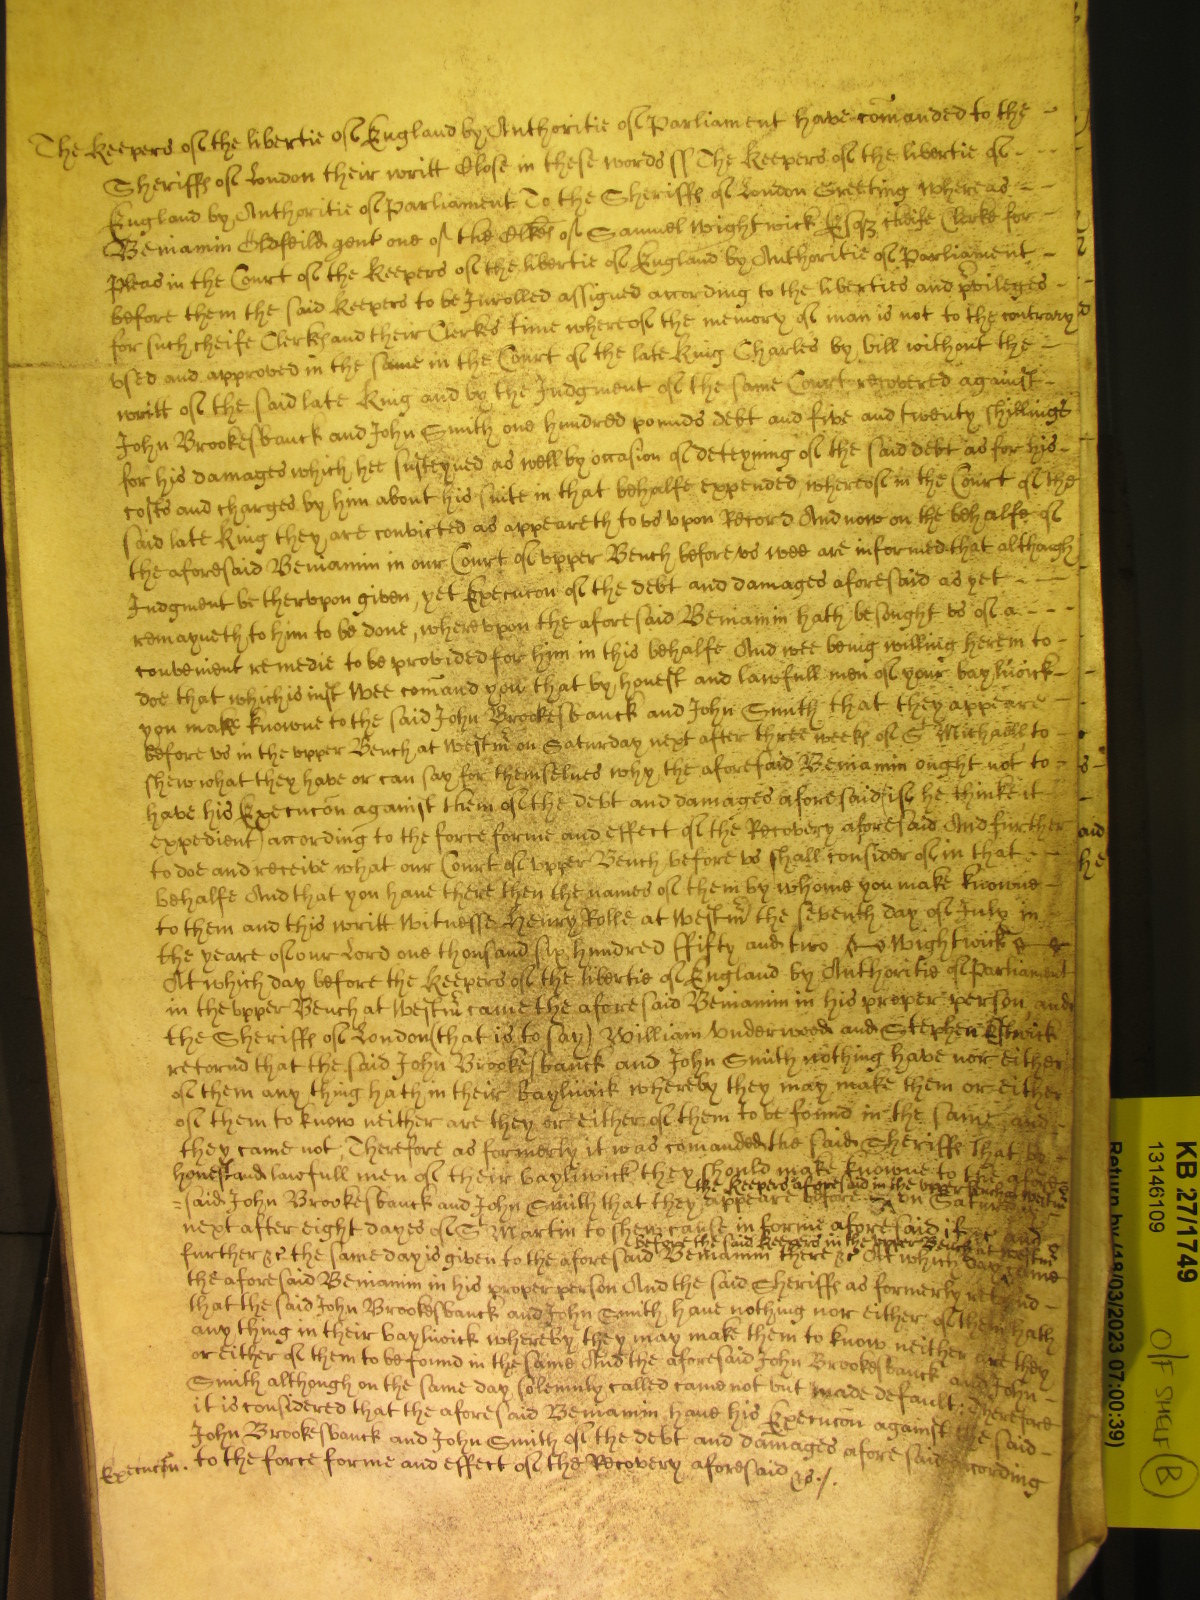 The Keepers of the libertie of England by Authoritie of Parliament have com̄anded to the
Sheriffs of London their writt Close in these words ss The Keepers of the libertie of
England by Authoritie of Parliament To the Sheriffs of London Greeting whereas
Beniamin Oldfeild gent one of the Clkes of Samuel Wightwick Esqr cheife Clerke for
Pleas in the Court of the Keepers of the libertie of England by Authoritie of Parliament
before them the said Keepers to be Inrolled assigned according to the liberties and privileges
for such cheife Clerks and their Clerkes time whereof the memory of man is not to the contrary
vsed and approved in the same in the Court of the late King Charles by bill without the
writt of the said late King and by the Judgment of the same Court recovered against
John Brookesbanck and John Smith one hundred pounds debt and five and twenty shillings
for his damages which hee susteyned as well by occasion of deteyning of the said debt as for his
costs and charges by him about his suite in that behalfe expended whereof in the Court of the
said late King they are convicted as appeareth to vs vpon Record And now on the behalfe of
the aforesaid Beniamin in our Court of vpper Bench before vs wee are informed that although
Judgment be thervpon given, yet Execucōn of the debt and damages aforesaid as yet
remayneth to him to be done, wherevpon the aforesaid Beniamin hath besought vs of a
convenient remedie to be provided for him in this behalfe And wee being willing herein to
doe that which is iust Wee com̄and you that by honest and lawfull men of your baylwick
you make knowne to the said John Brookesbanck and John Smith that they appeare
before vs in the vpper Bench at Westm̄ on Saturday next after three weeks of St Michaell to
shew what they have or can say for themselues why the aforesaid Beniamin ought not to
have his Execucōn against them of the debt and damages aforesaid (if he thinke it
expedient) according to the force forme and effect of the Recovery aforesaid And further
to doe and receive what our Court of vpper Bench before vs shall consider of in that
behalfe And that you haue there then the names of them by whome you make knowne
to them and this writt Witnesse Henry Rolle at Westm̄ the seventh day of July in
the yeare of our Lord one thousand six hundred ffifty and two Wightwick
At which day before the Keepers of the libertie of England by Authoritie of Parliament
in the vpper Bench at Westm̄ came the aforesaid Beniamin in his proper person and
the Sheriffs of London (that is to say) William Vnderwood and Stephen Estwick
retornd that the said John Brookesbanck and John Smith nothing have nor either
of them any thing hath in their baylwick whereby they may make them or either
of them to know neither are they or either of them to be found in the same, and
they came not, Therefore as formerly it was comanded the said Sheriffs that by
honest and lawfull men of their baylwick they should make knowne to the afore
the Keepers aforesaid in the vpper bench at westm̄
said John Brookesbanck and John Smith that they appeare before on Saturday
next after eight dayes of St Martin to shew cause in forme aforesaid if &c and
before the said Keepers in the vpper Bench at westm̄
further &c the same day is given to the aforesaid Beniamin there &c At which day came
the aforesaid Beniamin in his proper person And the said Sheriffs as formerly retornd
that the said John Brookesbanck and John Smith haue nothing nor either of them hath
any thing in their baylwick whereby they may make them to know neither are they
or either of them to be found in the same And the aforesaid John Brookesbanck and John
Smith although on the same day solemnly called came not but made default: Therefore
it is considered that the aforesaid Beniamin haue his Execucōn against the said
John Brookesbanck and John Smith of the debt and dam̄ages aforesaid according
Execucōn. to the force forme and effect of the Recovery aforesaid &c./.
aid
he
KB 27/1749
13146109
Return by (18/03/2023 07:00:39)
O/F SHELF B